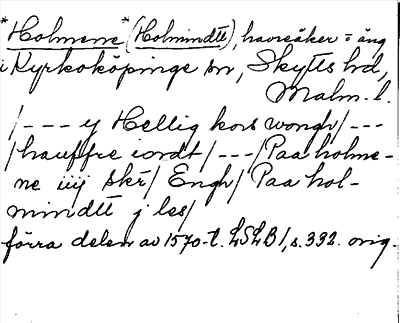 *Holmene *(Holmindtt), havreåker = äng
i Kyrkoköpinge sn, Skytts hd,
Malm. l.
/--- y Hellig kors wongh/---
/hauffre iordt/---/Paa holme-
ne iiij skr/ Engh/ Paa hol-
mindtt j les/
förra delen av 1570-t. LSLB1, s. 332. orig.